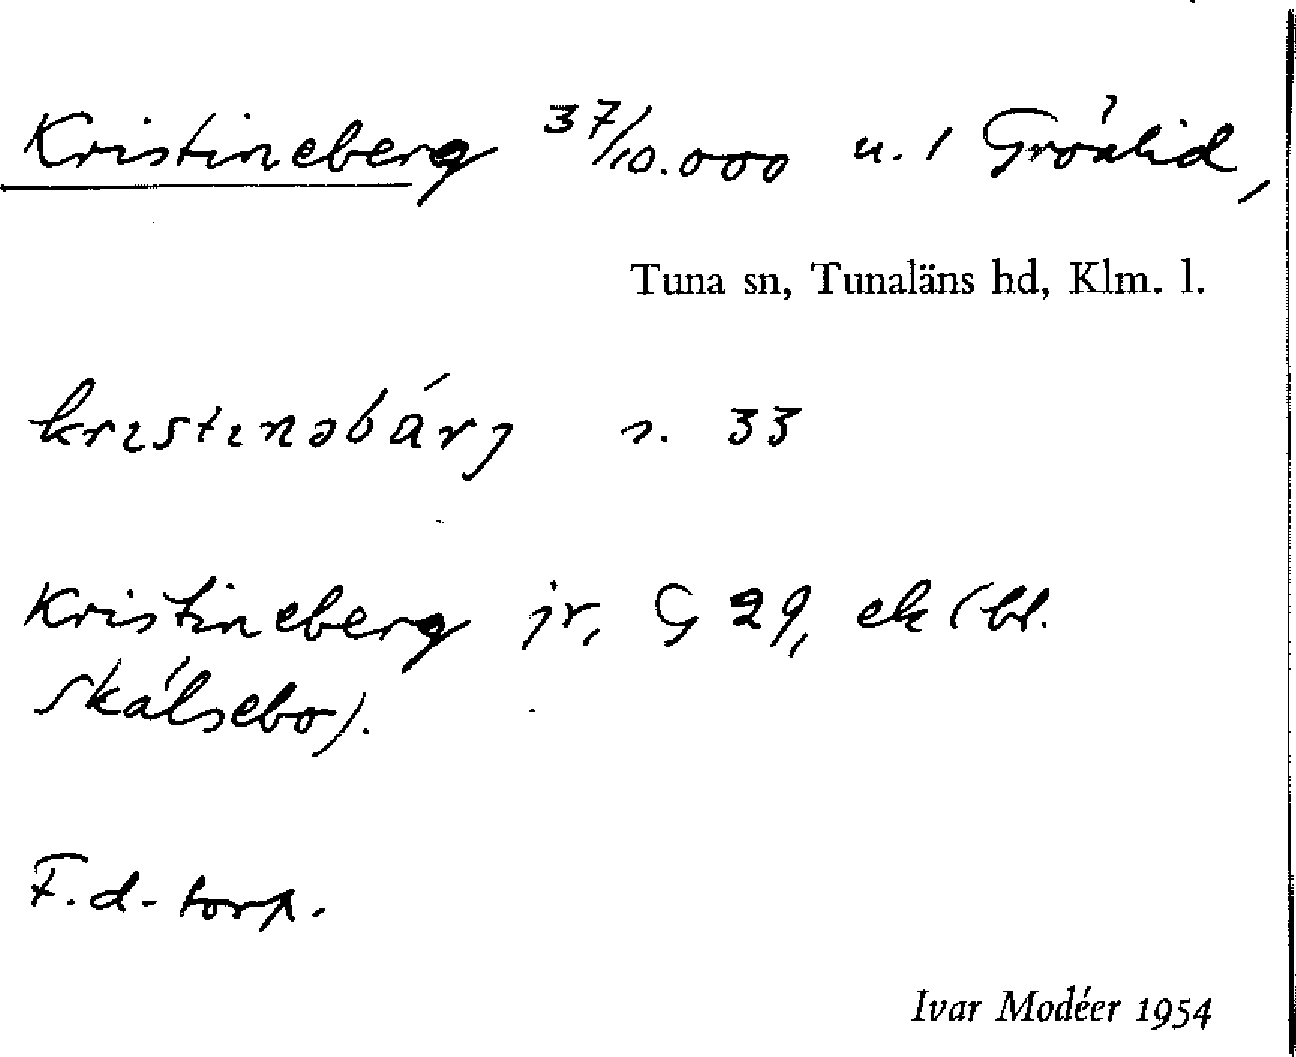 Kristineberg 37/10.000 u. 1 Grönlid,
Tuna sn, Tunaläns hd, Klm. l.
krıstınəbárj s. 33
Kristineberg jr, G 29, ek (bl.
Skälsebo).
F.d. torp.
Ivar Modéer 1954